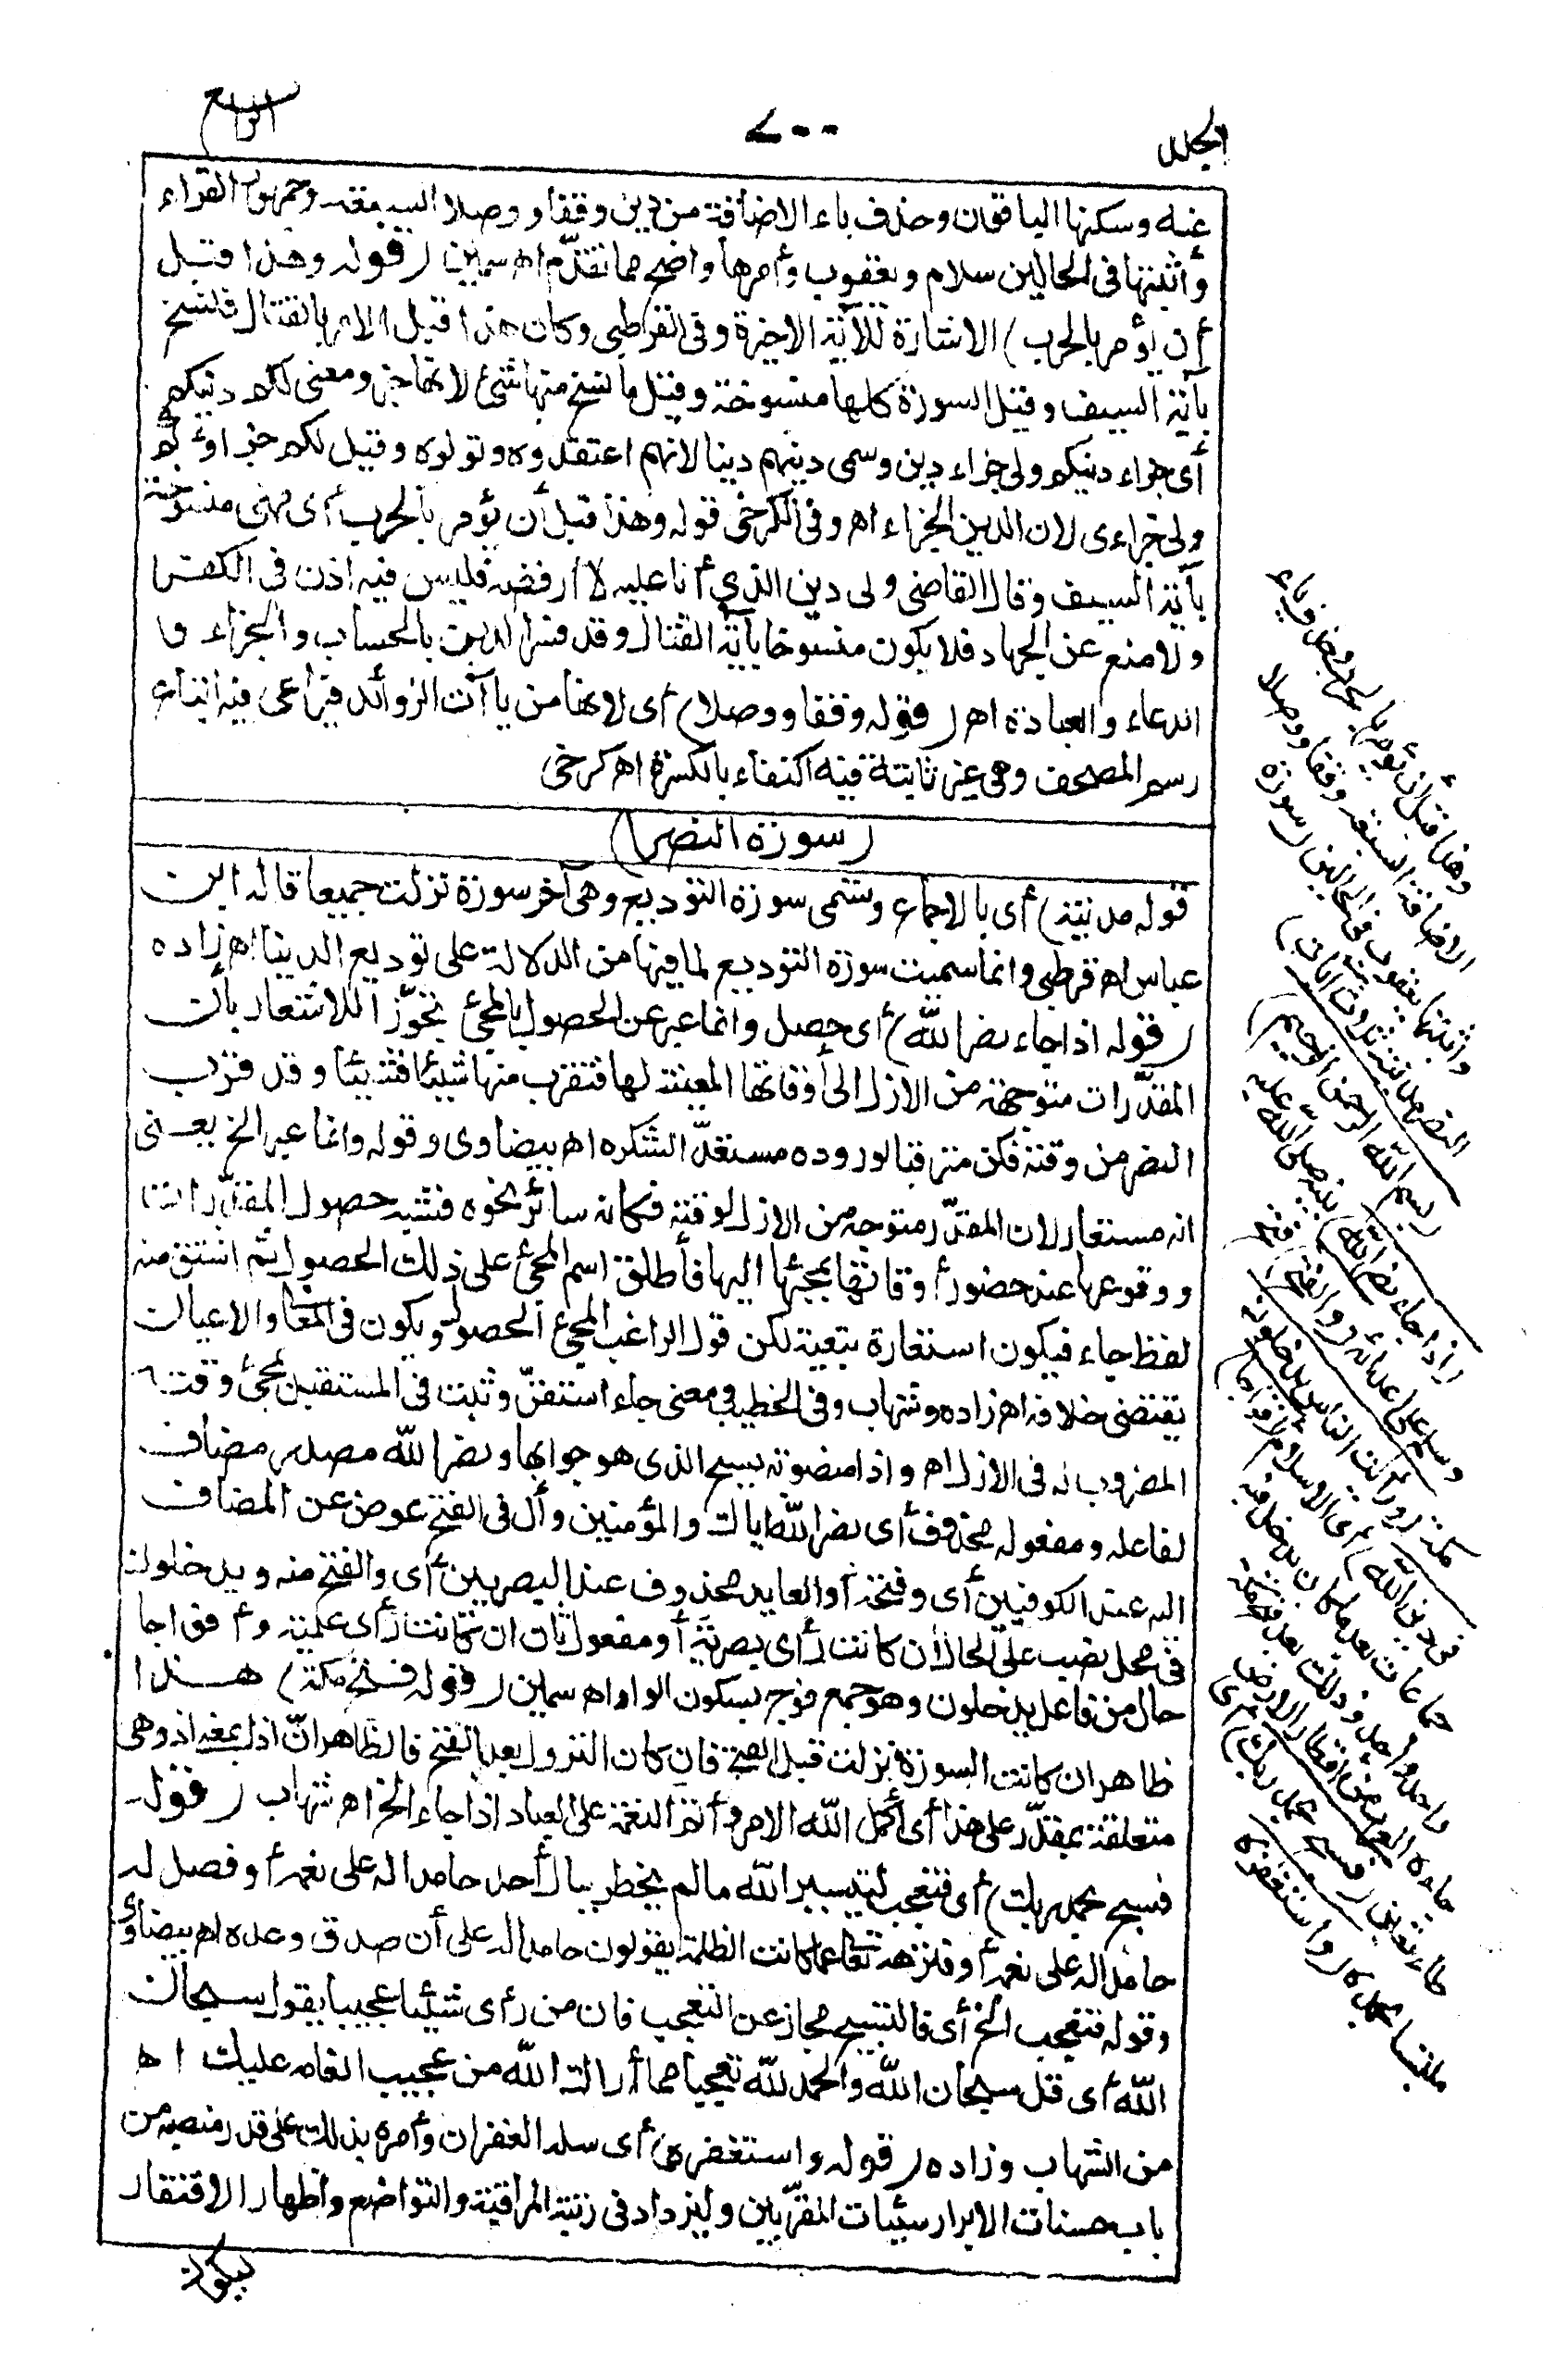 الجلد
٧٠٠
الرابع
عنه وسكنها الباقون وحذف ياء الاضافة من دين وقفا ووصلا السبعة وجمهور القراء
وأثبتها في الحالين سلام ويعقوب وأمرها واضح مما تقدّم اه سمين (قوله وهذا قبل
أن يؤمر بالحرب) الاشارة للآية الاخيرة وفي القرطبي وكان هذا قبل الامر بالقتال فنسخ
بآية السيف وقيل السورة كلها منسوخة وقيل ما نسخ منها شئ لانها خبر ومعنى لكم دينكم
أي جزاء دينكم ولي جزاء دين وسمى دينهم دينا لانهم اعتقدوه وتولوه وقيل لكم جزاؤكم
ولي جزاءى لان الدين الجزاء اه وفي الكرخي قوله وهذا قبل أن يؤمر بالحرب أى فهى منسوخة
بآية السيف وقال القاضي ولي دين الذي أنا عليه لا أرفضه فليس فيه اذن في الكفر
ولا منع عن الجهاد فلا يكون منسوخا بآية القتال وقد فسر الدين بالحساب والجزاء و
الدعاء والعبادة اه (قوله وقفا ووصلا) أى لانها من ياآت الزوائد فيراعى فيه اتباع
رسم المصحف وهي غير ثابتة فيه اكتفاء بالكسرة اه كرخي
(سورة النصر)
قوله مدنية) أى بالاجماع وتسمى سورة التوديع وهي آخر سورة نزلت جميعا قاله ابن
عباس اه قرطبي وانما سميت سورة التوديع لما فيها من الدلالة على توديع الدنيا اه زاده
(قوله اذا جاء نصر الله) أى حصل وانما عبر عن الحصول بالمجئ تجوّزا للاشعار بأن
المقدّرات متوجهة من الازل الى أوقاتها المعينة لها فتقرب منها شيئا فشيئا وقد قرب
النصر من وقته فكن مترقبا لوروده مستعدّا لشكره اه بيضاوى وقوله وانما عبر الخ يعنى
انه مستعار لان المقدّر متوجه من الازل لوقته فكانه سائر نحوه فشبه حصول المقدّرات
ووقوعها عند حضور أوقاتها بمجئها اليها فأطلق اسم المجئ على ذلك الحصول ثم اشتق منه
لفظ جاء فيكون استعارة تبعية لكن قول الراغب المجئ الحصول ويكون في المعاني والاعيان
يقتضى خلافه اه زاده وشهاب وفي الخطيب ومعنى جاء استقرّ وثبت في المستقبل بمجئ وقته
المضروب له في الازل اه واذا منصوبة بسبح الذي هو جوابها ونصر الله مصدر مضاف
لفاعله ومفعوله محذوف أى نصر الله اياك والمؤمنين وأل في الفتح عوض عن المضاف
اليه عند الكوفيين أى وفتحه أو العايد محذوف عند البصريين أى والفتح منه ويدخلون
في محل نصب على الحال ان كانت رأى بصرية أو مفعول ثان ان كانت رأى علمية وأفواجا
حال من فاعل يدخلون وهو جمع فوج بسكون الواو اه سمين (قوله فتح مكة) هذا
ظاهر ان كانت السورة نزلت قبل الفتح فان كان النزول بعد الفتح فالظاهر انّ اذا بمعنى اذ وهى
متعلقة بمقدّر على هذا أى أكمل الله الامر وأتمّ النعمة على العباد اذا جاء الخ اه شهاب (قوله
فسبح بحمد ربك) أى فتعجب لتيسير الله ما لم يخطر ببال أحد حامدا له على نعمه أو فصل له
حامدا له على نعمه أو فنزهه تعالى عما كانت الظلمة يقولون حامدا له على أن صدق وعده اه بيضاوى
وقوله فتعجب الخ أى فالتسبيح مجاز عن التعجب فان من رأى شيئا عجيبا يقول سبحان
الله أى قل سبحان الله والحمد لله تعجبا مما أراك الله من عجيب انعامه عليك اه
من الشهاب وزاده (قوله واستغفره) أى سله الغفران وأمره بذلك على قدر منصبه من
باب حسنات الابرار سيئات المقرّبين وليزداد في رتبة المراقبة والتواضع واظهار الافتقار
ليكون
وهذا قبل أن يؤمر بالحرب وحذف ياء
الاضافة السبعة وقفا ووصلا
وأثبتها يعقوب في الحالين (سورة
النصر مدنية ثلاث آيات)
(بسم الله الرحمن الرحيم)
(اذا جاء نصر الله) نبيه صلى الله عليه
وسلم على أعدائه (والفتح) فتح
مكة (ورأيت الناس يدخلون
في دين الله) أى الاسلام (أفواجا)
جماعات بعد ما كان يدخل فيه
واحد واحد وذلك بعد فتح مكة
جاءه العرب من أقطار الارض
طائعين (فسبح بحمد ربك) أى
ملتبسا بحمده (واستغفره